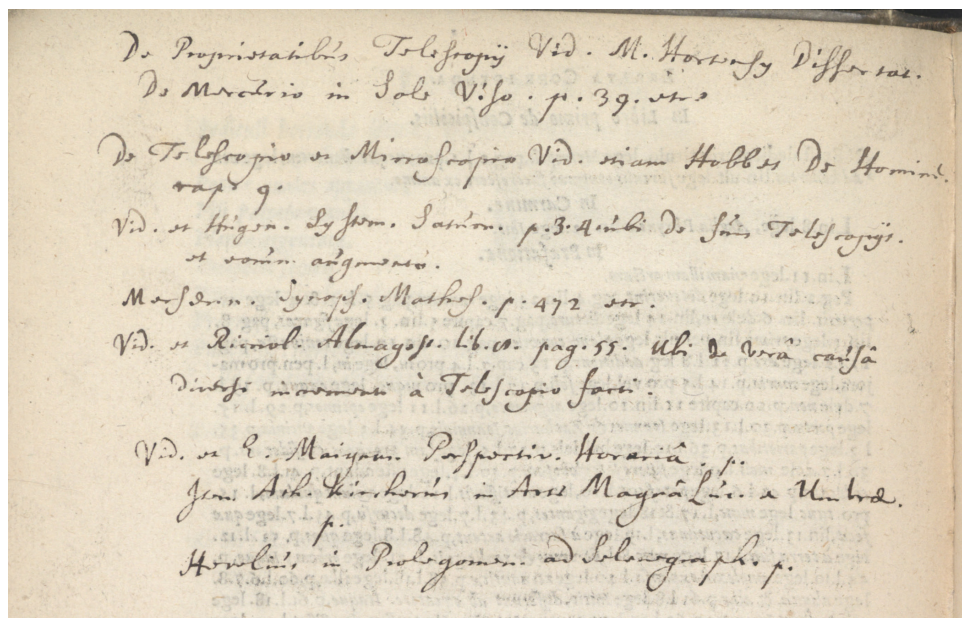 De Proprietatibus Telescopij Vid. M. Hortensij Dissertat.
De Mercurio in Sole Viso. p. 39. etc.
De Telescopio et Microscopio Vid. etiam Hobbes De Homine.
cap. 9.
Vid. et Hugen. System. Saturn. p. 3. 4. ubi De suis Telescopijs.
et eorum augmento.
Mersenn. Synops. Mathes. p. 472 etc.
Vid. et Ricciol. Almagest. lib. pag. 55. Ubi de verâ causâ
diversi incrementi a Telescopio facti.
Vid. et E. Maignan. Perspectiv. Horariâ p.
Item Ath. Kircherus in Arte Magnâ Luc. a Umbræ.
p.
Hevelius in Prolegomen. ad Selenograph. p.